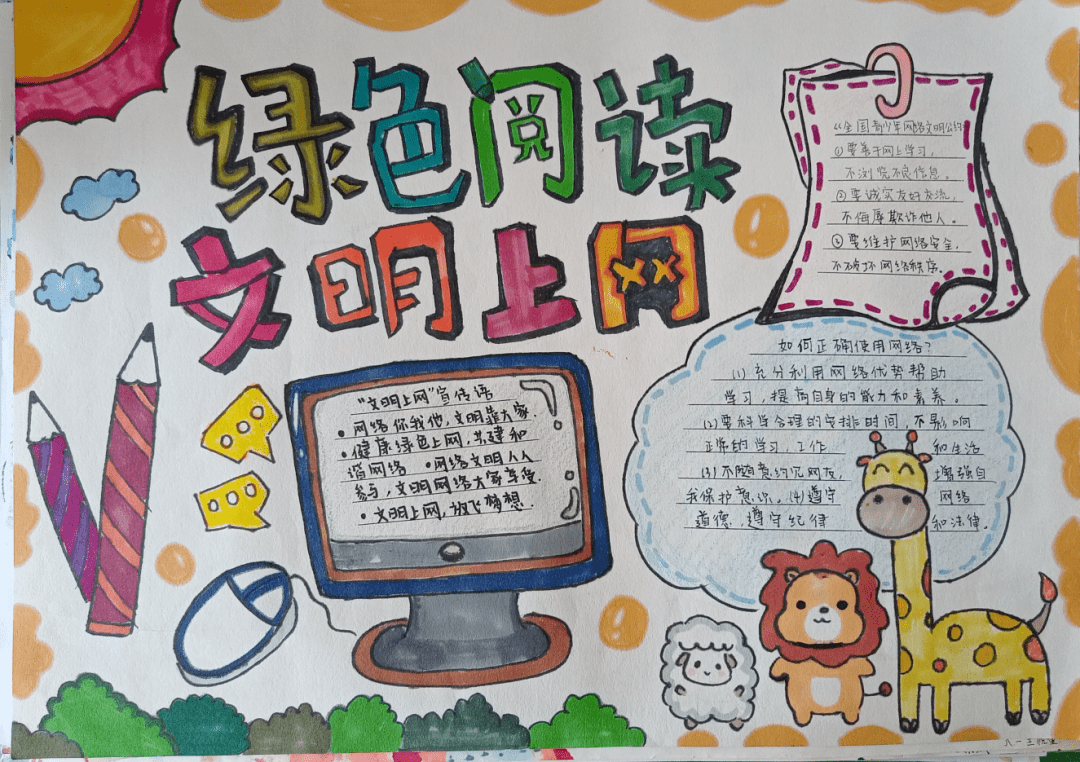 绿色阅读
文明上网
《全国青少年网络文明公约
①要善于网上学习，
不浏览不良信息。
②要诚实友好交流，
不侮辱欺诈他人。
③要维护网络安全，
不破坏网络秩序。
如何正确使用网络？
(1)充分利用网络优势帮助
学习，提高自身的能力和素养。
(2)要科学合理的安排时间，不影响
正常的学习，工作 和生活
(3)不随意约见网友， 增强自
我保护意识。(4)遵守 网络
道德，遵守纪律 和法律。
"文明上网"宣传语
•网络你我他，文明靠大家.
•健康绿色上网，共建和
谐网络 •网络文明人人
参与，文明网络大家享受.
•文明上网，放飞梦想.